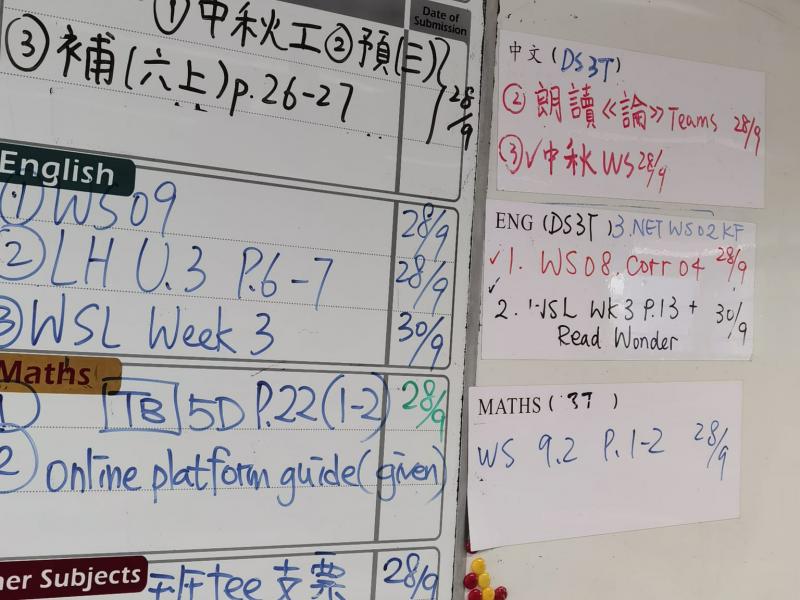 Date of
Submission
①中秋工②預(三)
③補(六上)p.26-27 28/9
English
①WS09 28/9
②LH U.3 P.6-7 28/9
③WSL Week 3 30/9
Maths
TB 5D P.22(1-2) 28/9
2 online platform guide(given)
ner Subjects
tee 支票 28/9
中文(DS3T)
② 朗讀《論》Teams 28/9
③✓中秋WS 28/9
ENG (DS3T) 3.NET WS02 KF
✓1. WS08 Corr 04 28/9
✓
2. WSL WK3 P.13 + 30/9
Read Wonder
MATHS ( 3T )
WS 9.2 P.1-2 28/9